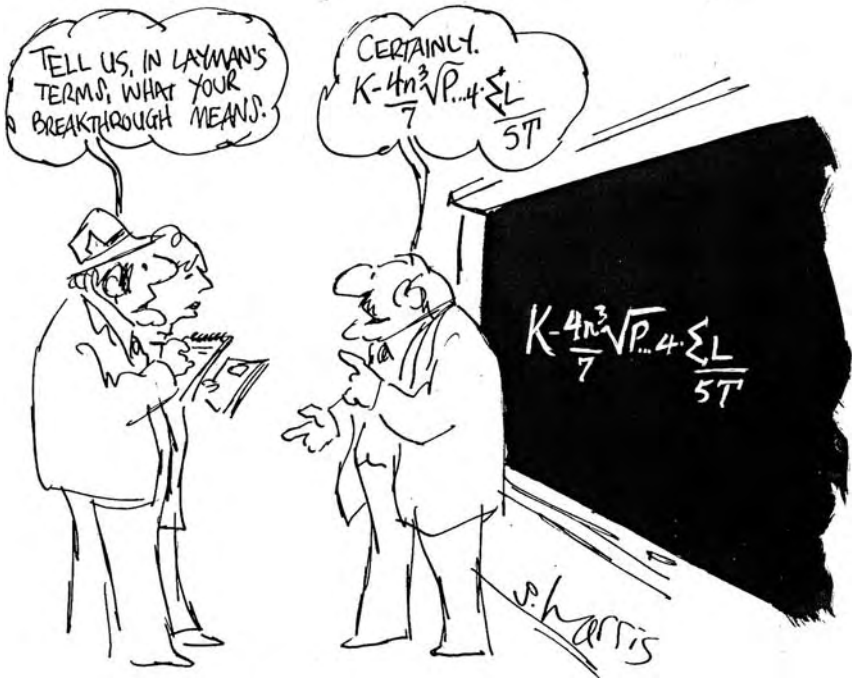 TELL US, IN LAYMAN'S
TERMS, WHAT YOUR
BREAKTHROUGH MEANS.
CERTAINLY.
K-4n³/7 √P...4·ΣL/5T
K-4n³/7 √P...4·ΣL/5T
S. Harris